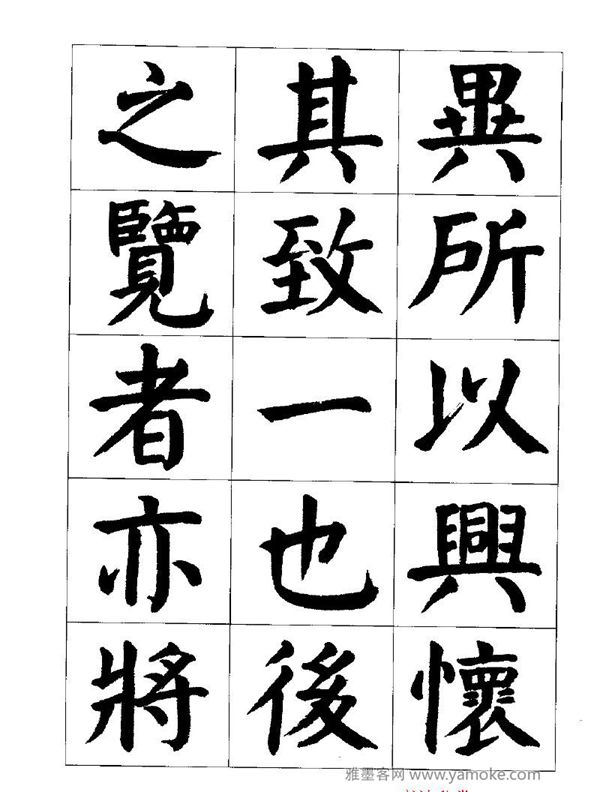 異所以興懷
其致一也後
之覽者亦將
雅墨客网 www.yamoke.com